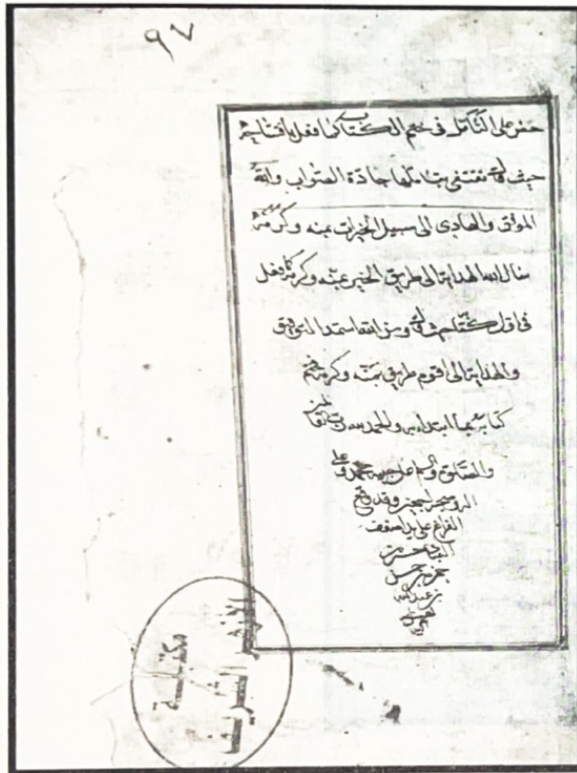 ٩٧
حض على التأمل في ختم الكتاب كما فعل بافتتاحه
حيث قال مقتفى بتأملها جادة الصواب والله
الموفق والهادي الى سبيل الخيرات بمنه وكرمه
سال الله الهداية الى طريق الخير بمنه وكرمه كما فعل
في اول كتابه قال ومن الله استمد التوفيق
والهداية الى اقوم طريق بمنه وكرمه ختم
كتابه بما ابتدا به والحمد لله
والصلوة والسلام على محمد وعلى
اله وصحبه اجمعين وقد وقع
الفراغ على يد اضعف
العباد
بن
مكتبة
الأزهر الشريف